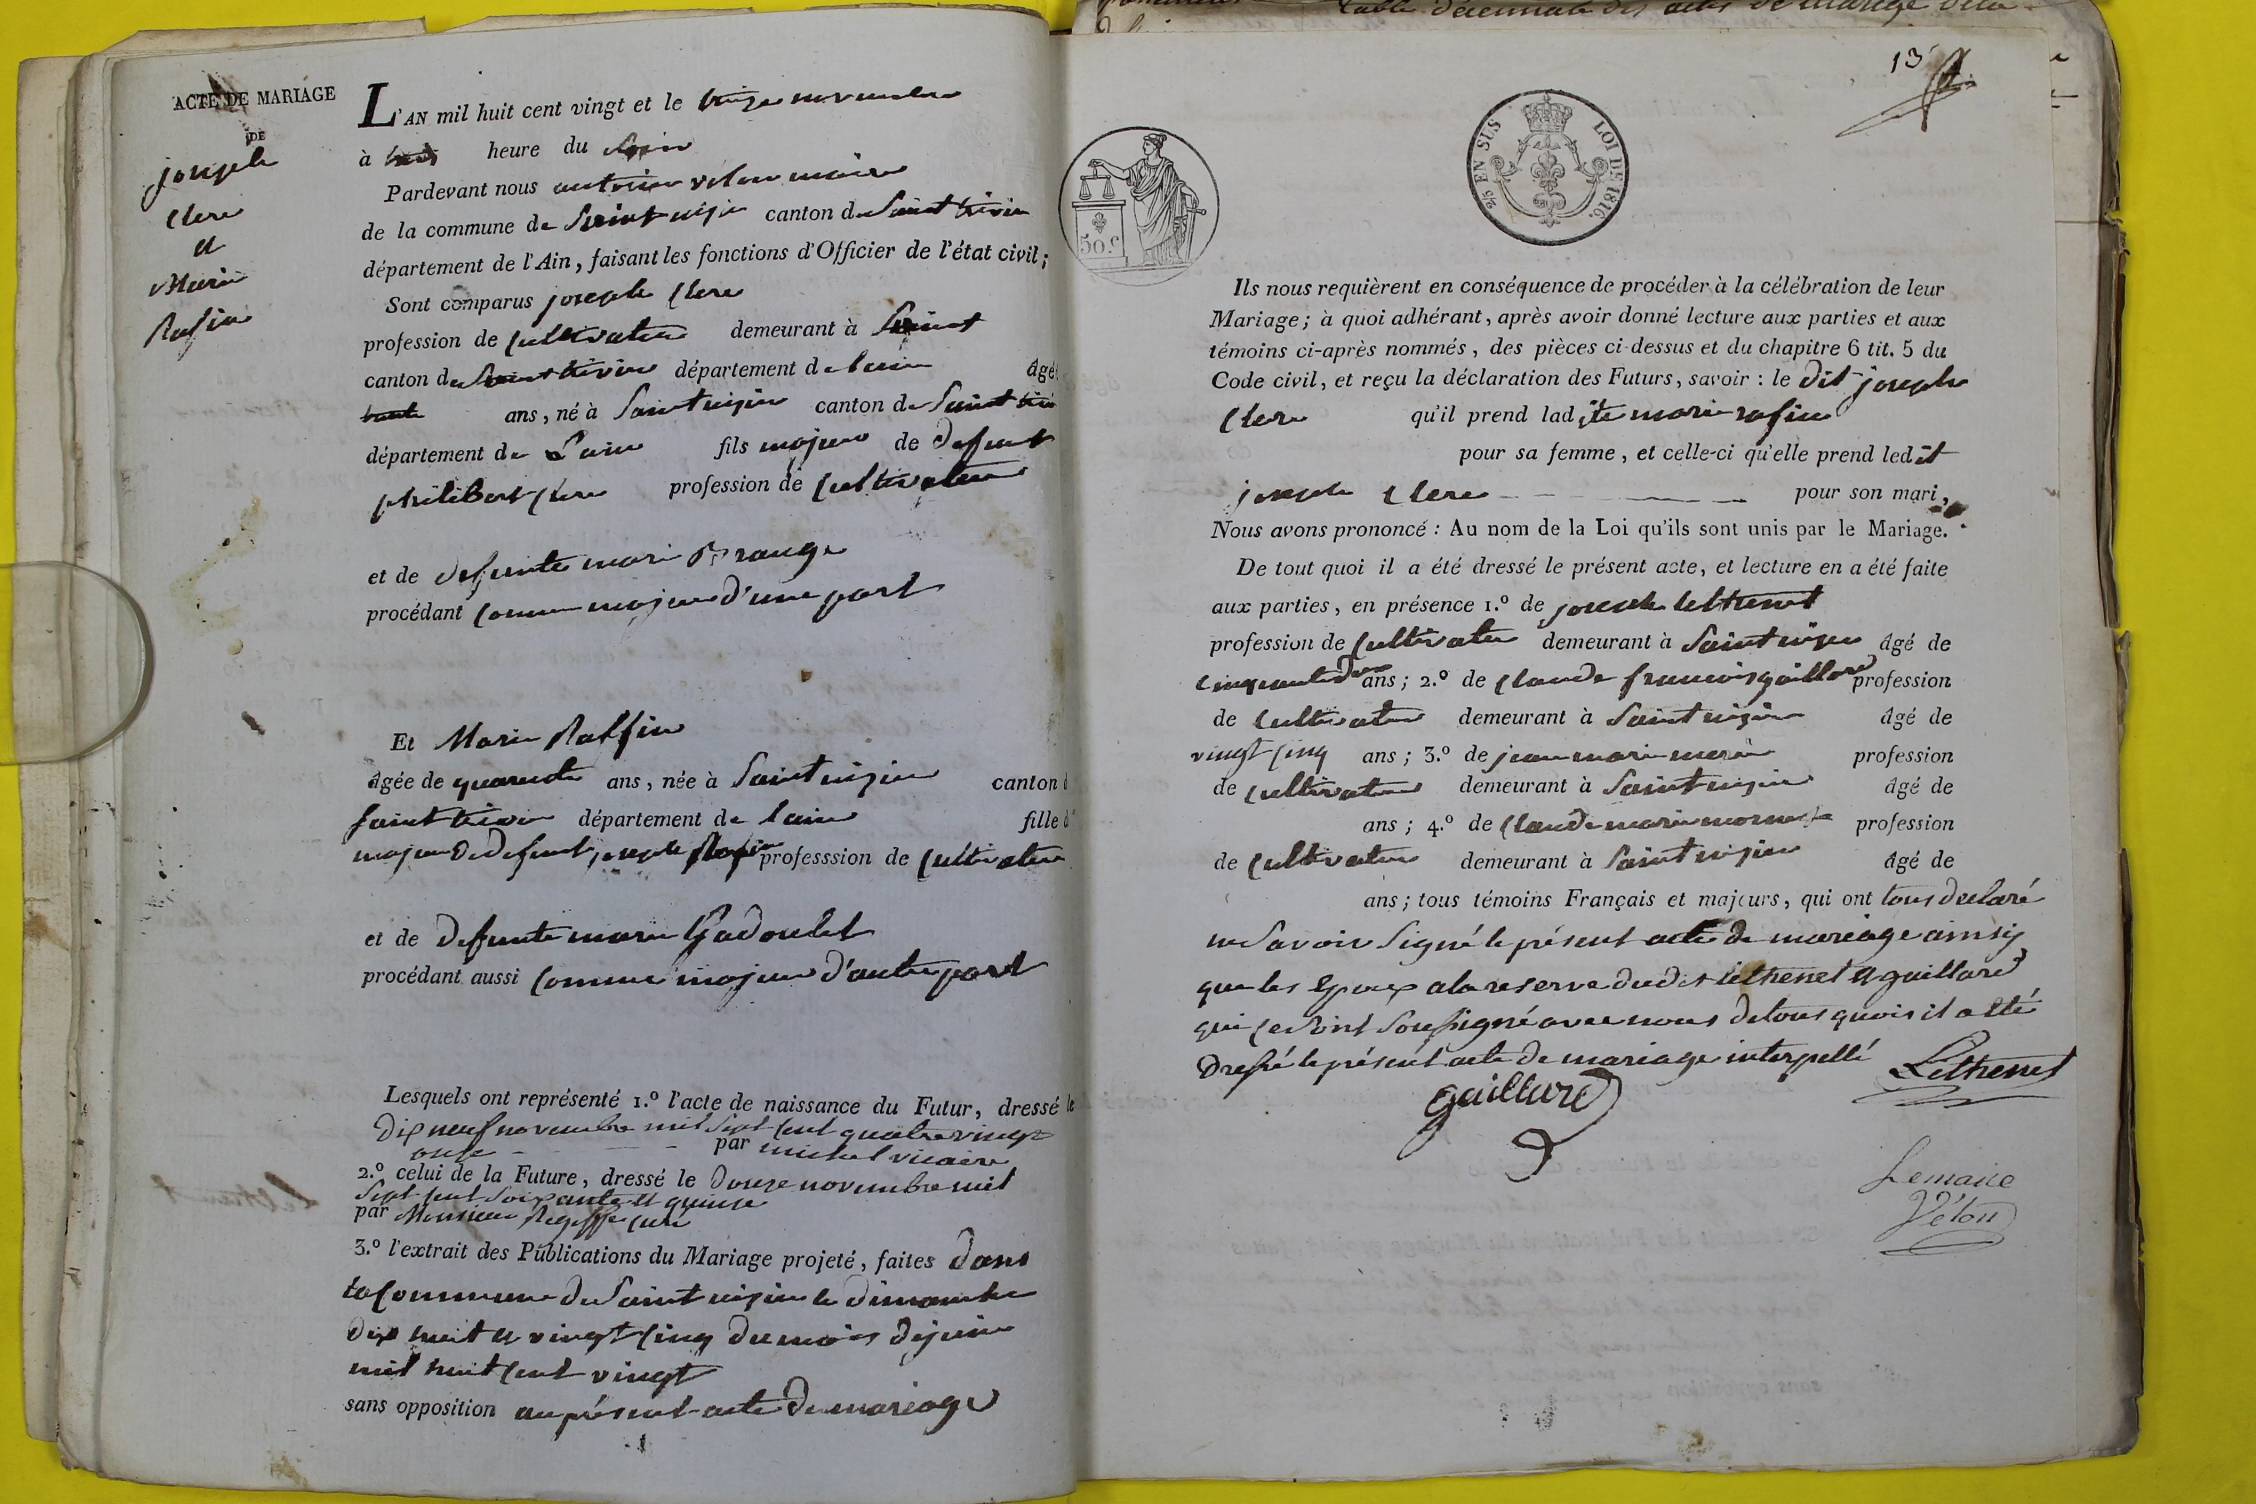 ACTE DE MARIAGE
DE
joseph
Clere
et
Marie
Rafin
L'AN mil huit cent vingt et le novembre
à heure du Soir
Pardevant nous antoine velon maire
de la commune de Saint nizier canton de Saint trivier
département de l'Ain, faisant les fonctions d'Officier de l'état civil;
Sont comparus joseph Clere
profession de Cultivateur demeurant à Saint
canton de Saint trivier département de lain âgé
trente ans, né à Saint nizier canton de Saint trivi
département de Lain fils majeur de defunt
philibert Clere profession de Cultivateur
et de defunte mari
procédant Comme majeur d'une part
Et Marie Raffin
âgée de quarente ans, née à Saint nizier canton d
Saint trivier département de lain fille d
majeur de defunt joseph Rafin professsion de Cultivateur
et de defunte marie Gadoulet
procédant aussi Comme majeur d'autre part
Lesquels ont représenté 1.º l'acte de naissance du Futur, dressé le
Dix neuf novembre mil Sept Cent quatre vingt
onse par michel vicaire
2.º celui de la Future, dressé le Douze novembre mil
Sept Cent Soixante et quinze
par Monsieur Cure
3.º l'extrait des Publications du Mariage projeté, faites Dans
la Commune de Saint nizier le dimanche
Dix huit et vingt Cinq du mois de juin
mil huit Cent vingt
sans opposition au présent acte de mariage
13
50 c
2/5 EN SUS LOI DE 1816.
Ils nous requièrent en conséquence de procéder à la célébration de leur
Mariage; à quoi adhérant, après avoir donné lecture aux parties et aux
témoins ci-après nommés, des pièces ci-dessus et du chapitre 6 tit. 5 du
Code civil, et reçu la déclaration des Futurs, savoir : le dit joseph
Clere qu'il prend ladite marie rafin
pour sa femme, et celle-ci qu'elle prend ledit
joseph Clere pour son mari,
Nous avons prononcé : Au nom de la Loi qu'ils sont unis par le Mariage.
De tout quoi il a été dressé le présent acte, et lecture en a été faite
aux parties, en présence 1.º de joseph lethenet
profession de Cultivateur demeurant à Saint nizier âgé de
Cinquante deux ans; 2.º de Claude françois gaillard profession
de Cultivateur demeurant à Saint nizier âgé de
vingt Cinq ans; 3.º de jean marie profession
de Cultivateur demeurant à Saint nizier âgé de
ans; 4.º de Claude marie profession
de Cultivateur demeurant à Saint nizier âgé de
ans; tous témoins Français et majeurs, qui ont tous declaré
ne Savoir Signé le présent acte de mariage ainsy
que les Epoux a la reserve dudit lethenet et gaillard
qui ce Sont Soussigné avec nous de tous quois il a été
Dressé le présent acte de mariage interpellé Lethenet
gaillard
Lemaire
Velon